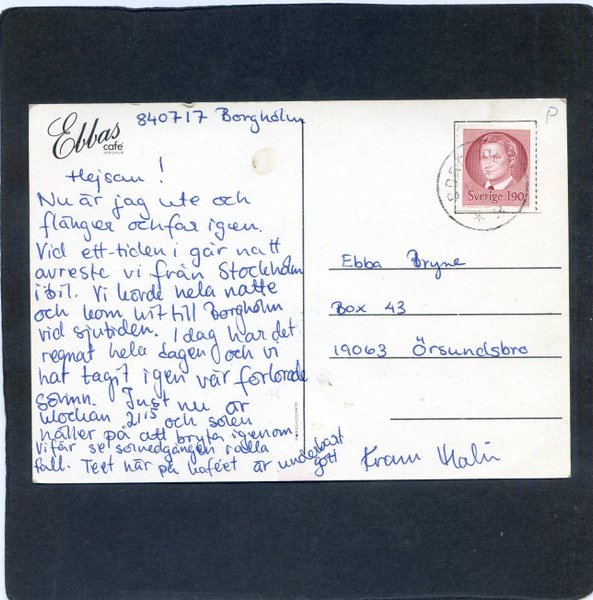 Ebbas
café
BORGHOLM
840717 Borgholm
P
Hejsan!
Nu är jag ute och
flänger och far igen.
Vid ett-tiden i går natt
avreste vi från Stockholm
i bil. Vi körde hela natte
och kom hit till Borgholm
vid sjutiden. I dag har det
regnat hela dagen och vi
har tagit igen vår förlorade
sömn. Just nu är
klockan 21¹⁵ och solen
håller på att bryta igenom.
Vi får se solnedgången i alla
fall. Teet här på kaféet är underbart
gott
Sverige 190
Ebba Bryne
Box 43
19063 Örsundsbro
Kram Malin